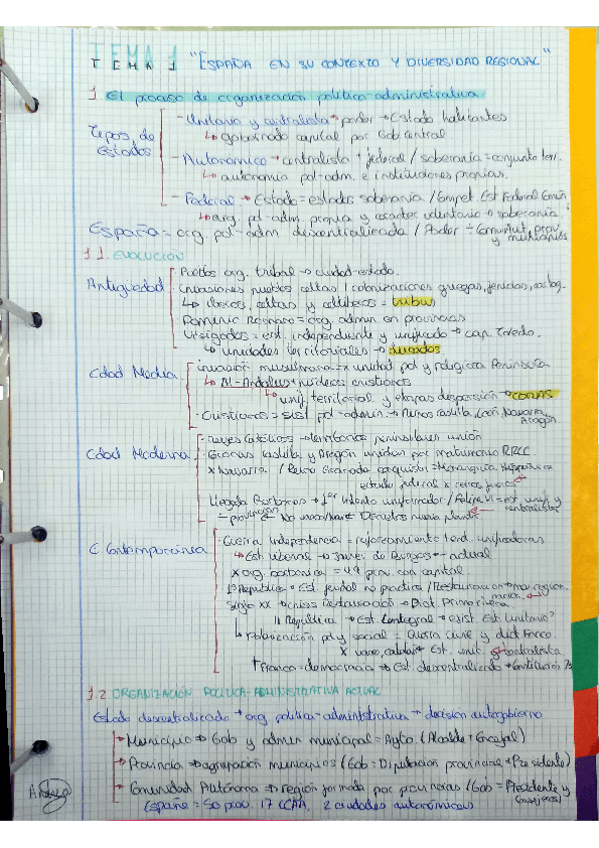 TEMA 1 "ESPAÑA EN SU CONTEXTO Y DIVERSIDAD REGIONAL"
1. El proceso de organización político-administrativa
Tipos de Estados
- Unitario y centralista → poder → Estado habitantes
↳ gobernado capital por Gob central
- Autonómico → centralista + federal / soberanía = conjunto terr.
↳ autonomía pol-adm. e instituciones propias.
- Federal → Estado = estados soberanía / Compet. Est Federal Común
↳ org. pol-adm propia y carácter voluntario → soberanía
España = org. pol-adm descentralizada / Poder = Comunut, prov y municipios
1.1. EVOLUCIÓN
Antigüedad
Pueblos org. tribal → ciudad-estado.
Invasiones pueblos celtas / colonizaciones griegas, fenicias, cartag.
↳ iberos, celtas y celtíberos = tribus
Dominio Romano = org. admin en provincias
Visigodos = est. independiente y unificado → cap. Toledo.
↳ unidades territoriales → ducados
Edad Media
Invasión musulmana = x unidad pol y religiosa Península
↳ Al-Andalus + núcleos cristianos
↳ unif. territorial y etapas dispersión → coras
- Cristianos = sist pol-admin. → Reinos Castilla, León, Navarra, Aragón
Edad Moderna
- Reyes Católicos → territorios peninsulares unión
- Coronas Castilla y Aragón unidas por matrimonio RRCC.
x Navarra / Reino Granada conquista = Monarquía Hispánica
estado federal x reinos
Llegada Borbones → 1er intento uniformador / Felipe V = est. unif y centralista
= provincias No vasco/navar Decretos nueva planta
E. Contemporánea
- Guerra Independencia = reforzamiento tend. unificadoras
↳ Est. liberal → Javier de Burgos → actual
x org. borbónica = 49 prov. con capital.
1ª República → Est. federal no práctica / Restauración
Siglo XX → crisis Restauración → Dict. Primo rivera
II República → Est. integral → exist. Est Unitario?
↳ Polarización pol y social = Guerra Civil y dict Franco
x vasco, catalán Est. unit. centralista
+ Franco = democracia → Est. descentralizado → Constitución 78
1.2 ORGANIZACIÓN POLÍTICA-ADMINISTRATIVA ACTUAL
Estado descentralizado → org política-administrativa → decisión autogobierno
→ Municipio → Gob y admin municipal = Ayto. (Alcalde + Concejal)
→ Provincia → agrupación municipios (Gob = Diputación provincial + Presidente)
→ Comunidad Autónoma → región formada por provincias (Gob = Presidente y Consejeros)
España = 50 prov. 17 CCAA, 2 ciudades autonómicas.